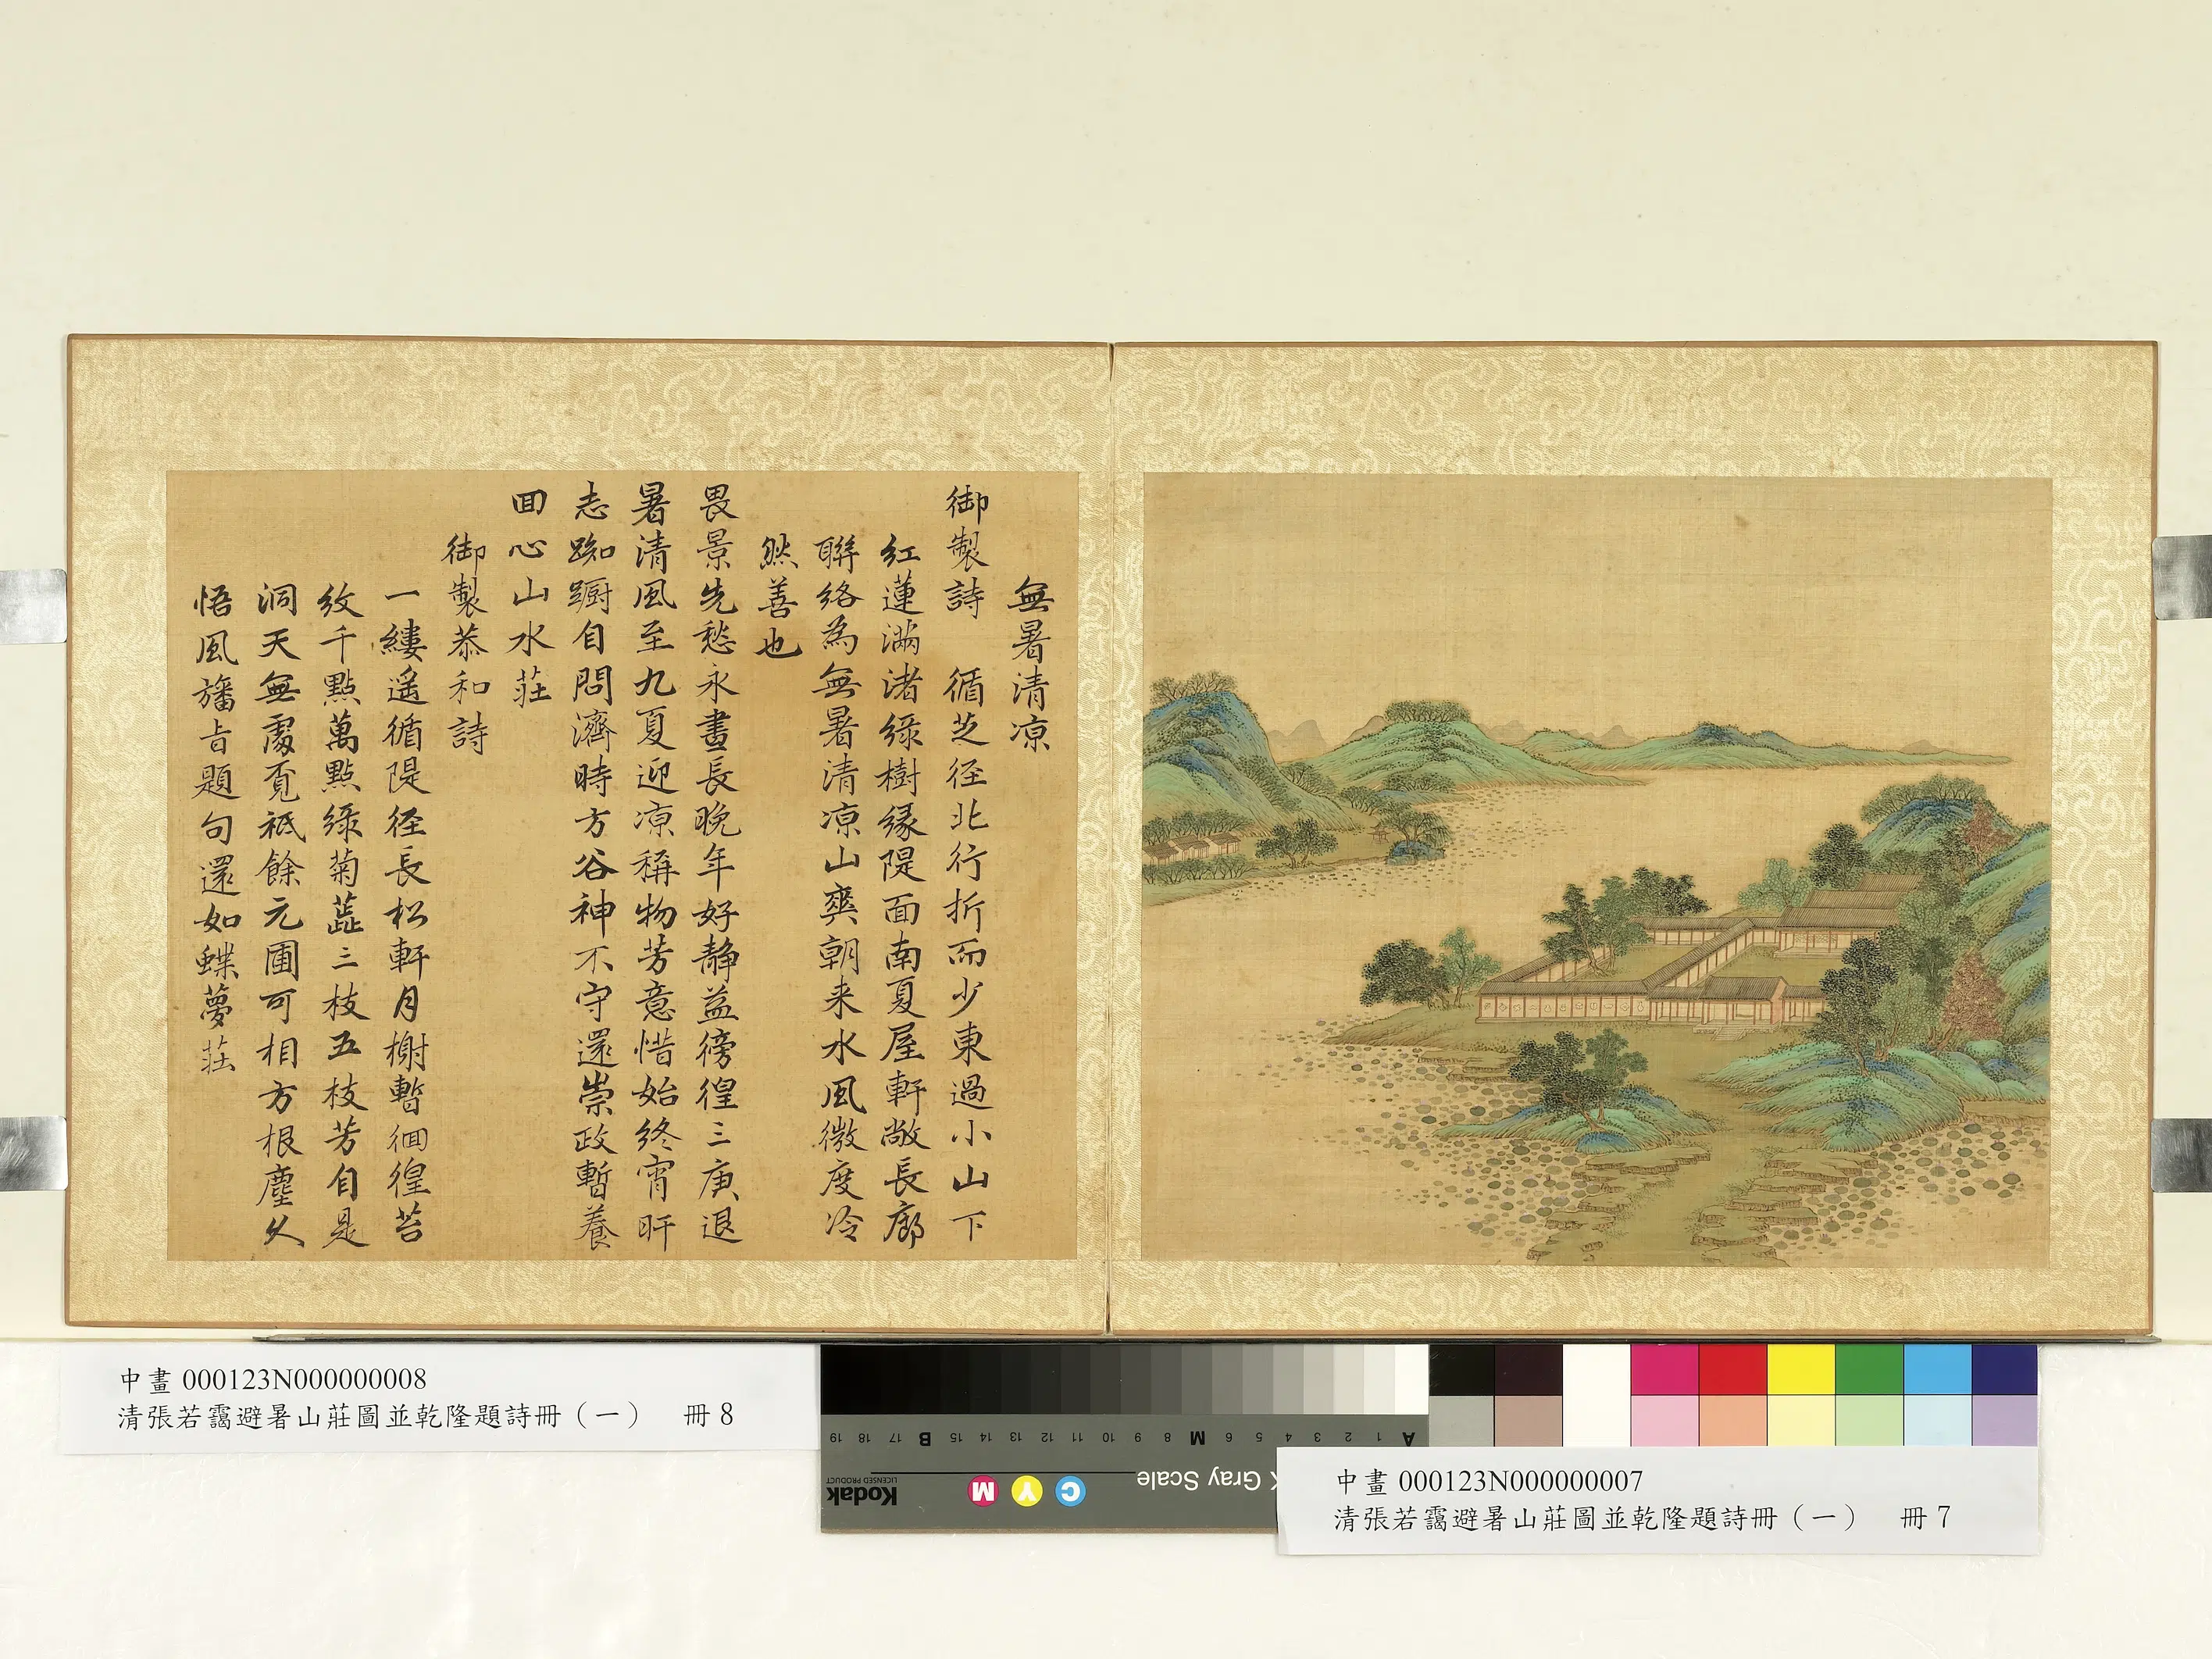 無暑清凉
御製詩　循芝径北行折而少東過小山下
紅蓮滿渚綠樹緣隄面南夏屋軒敞長廊
聯絡為無暑清凉山爽朝来水風微度冷
然善也
畏景先愁永晝長晚年好静益徬徨三庚退
暑清風至九夏迎凉稱物芳意惜始終宵旰
志踟蹰自問濟時方谷神不守還崇政暫養
囬心山水莊
御製恭和詩
一縷遥循隄径長松軒月榭暫徊徨苔
紋千點萬點綠菊蕋三枝五枝芳自是
洞天無處覔祗餘元圃可相方根塵久
悟風旛旨題句還如蝶夢莊
中畫 000123N000000008
清張若靄避暑山莊圖並乾隆題詩冊（一）　冊 8
A 1 2 3 4 5 6 M 8 9 10 11 12 13 14 15 B 17 18 19
Gray Scale
C Y M
Kodak
LICENSED PRODUCT
中畫 000123N000000007
清張若靄避暑山莊圖並乾隆題詩冊（一）　冊 7